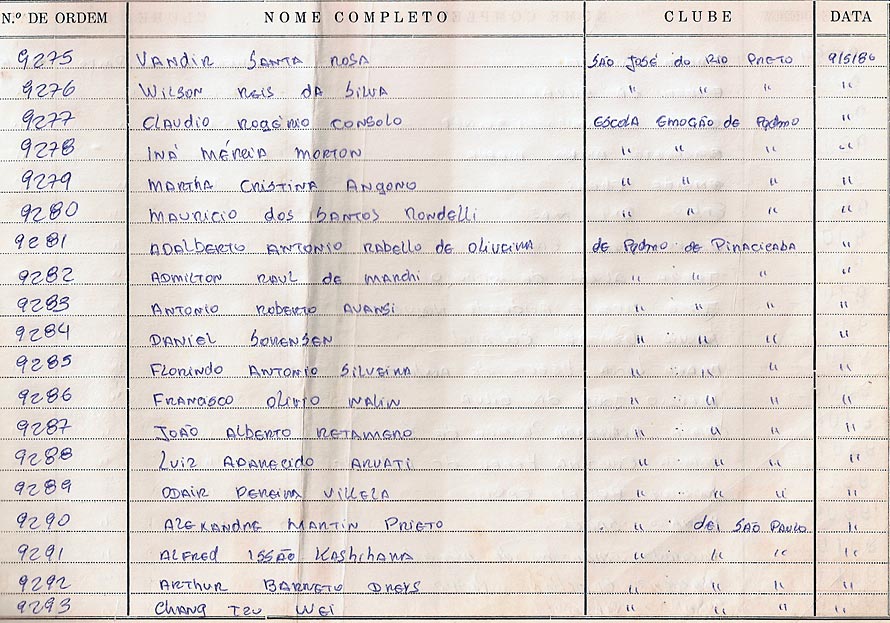 N.º DE ORDEM NOME COMPLETO CLUBE DATA
9275 VANDIR SANTA ROSA SÃO JOSÉ do RIO PRETO 9/5/86
9276 WILSON REIS DA SILVA " " " "
9277 CLAUDIO ROGÉRIO CONSOLO ESCOLA EMOÇÃO DE PQDMO "
9278 INÁ MÉRCIA MORTON " " " "
9279 MARTHA CRISTINA ANGONO " " " "
9280 MAURICIO dos SANTOS RONDElli " " " "
9281 ADALBERTO ANTONIO RABELLO DE OLIVEIRA de PQDMO DE PIRACICABA "
9282 ADMILTON RAUL de MARCHI " " " "
9283 ANTONIO ROBERTO AVANSI " " " "
9284 DANIEL SORENSEN " " " "
9285 FLORINDO ANTONIO SILVEIRA " " " "
9286 FRANCISCO OLIVIO WALIN " " " "
9287 JOÃO ALBERTO RETAMERO " " " "
9288 LUIZ APARECIDO ARVATI " " " "
9289 ODAIR PEREIRA VILLELA " " " "
9290 ALEXANDRE MARTIN PRIETO " dei SÃO PAULO "
9291 ALFRED ISSÃO KASHIHARA " " " "
9292 ARTHUR BARRETO DREYS " " " "
9293 CHANG TZU WEI " " " "